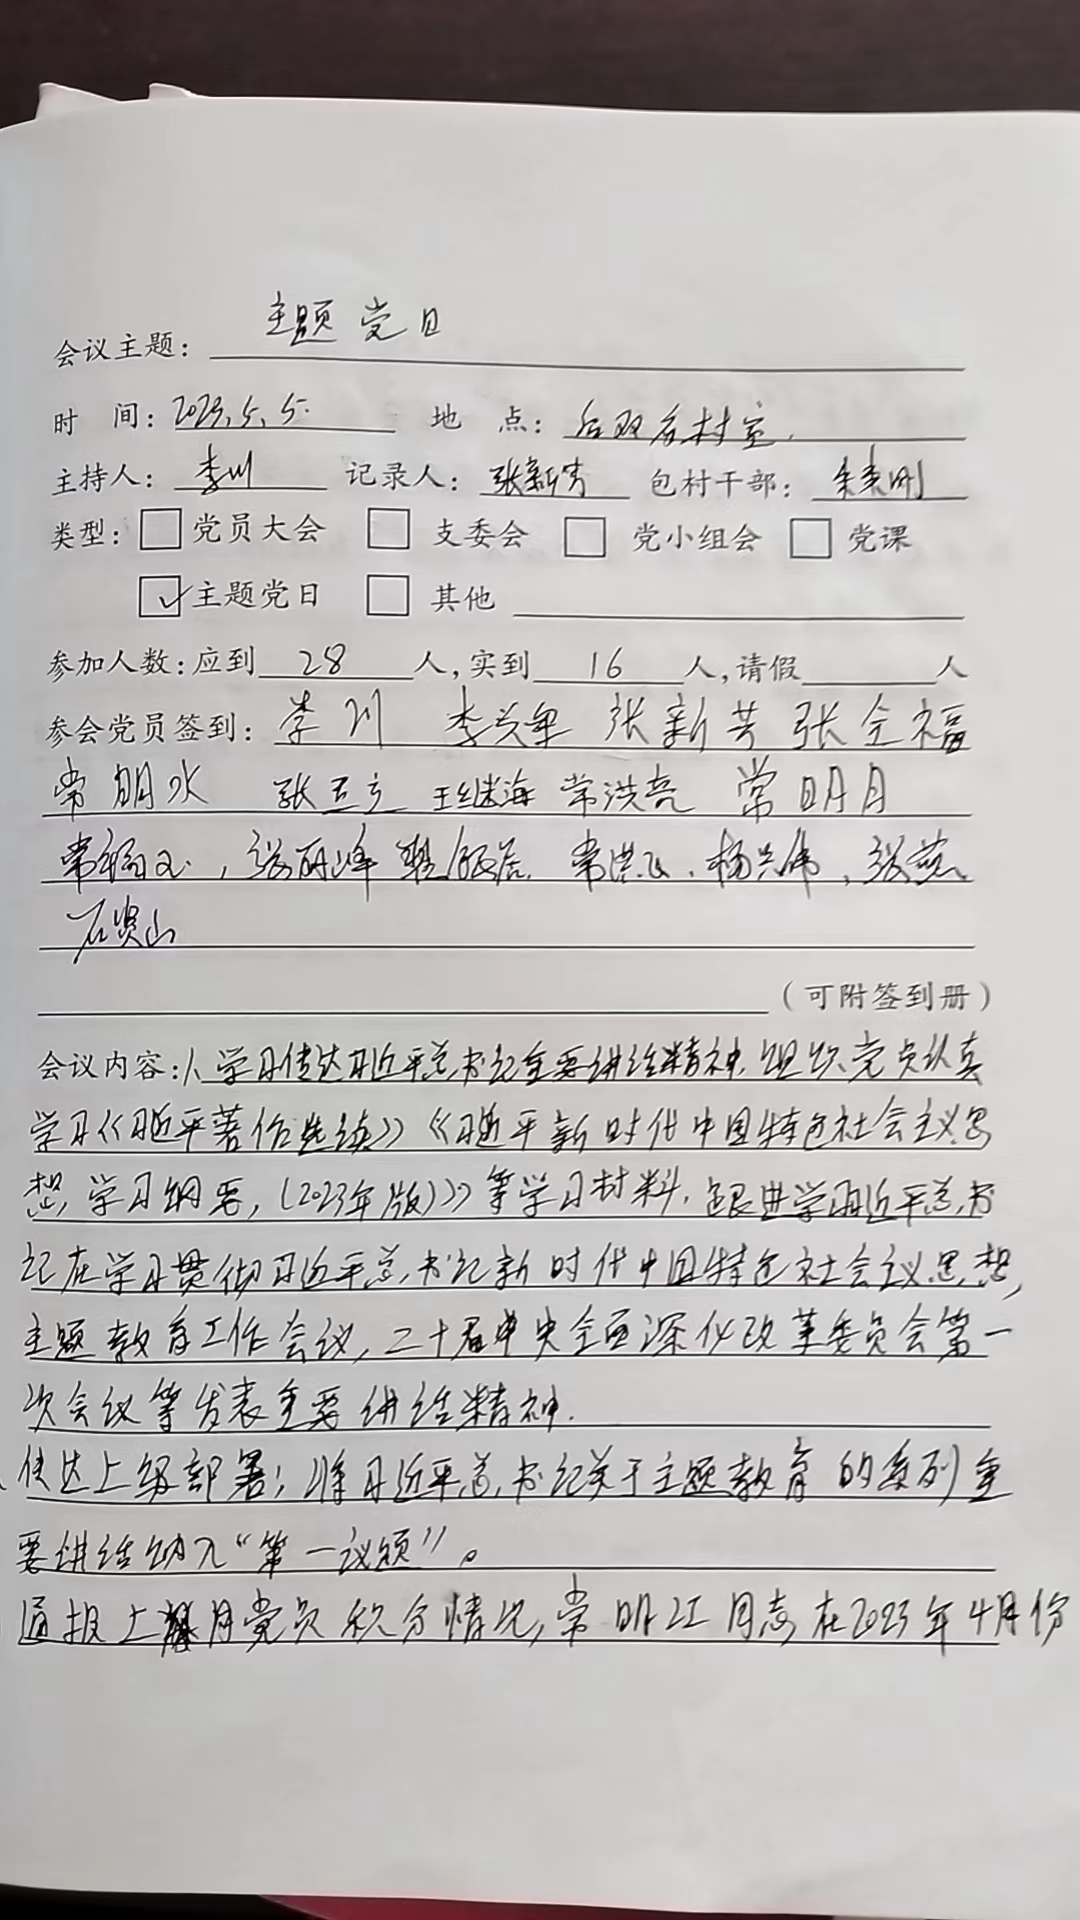 会议主题：主题党日
时 间：2023.5.5. 地 点：后双庙村室.
主持人：李川 记录人：张新芳 包村干部：
类型：□党员大会 □支委会 □党小组会 □党课
☑主题党日 □其他
参加人数：应到 28 人，实到 16 人，请假 人
参会党员签到：李川 李兴军 张新芳 张全福
常明水 王继海 常洪亮 常明月
张丽峰 常洪飞、杨兴伟，张燕
石贤山
（可附签到册）
会议内容：1、学习传达习近平总书记重要讲话精神，组织党员认真
学习《习近平著作选读》《习近平新时代中国特色社会主义思
想，学习纲要，（2023年版）》等学习材料，跟进学习近平总书
记在学习贯彻习近平总书记新时代中国特色社会主义思想，
主题教育工作会议，二十届中央全面深化改革委员会第一
次会议等发表重要讲话精神.
传达上级部署；将习近平总书记关于主题教育的系列重
要讲话纳入“第一议题”。
通报上月党员积分情况，常明江同志在2023年4月份